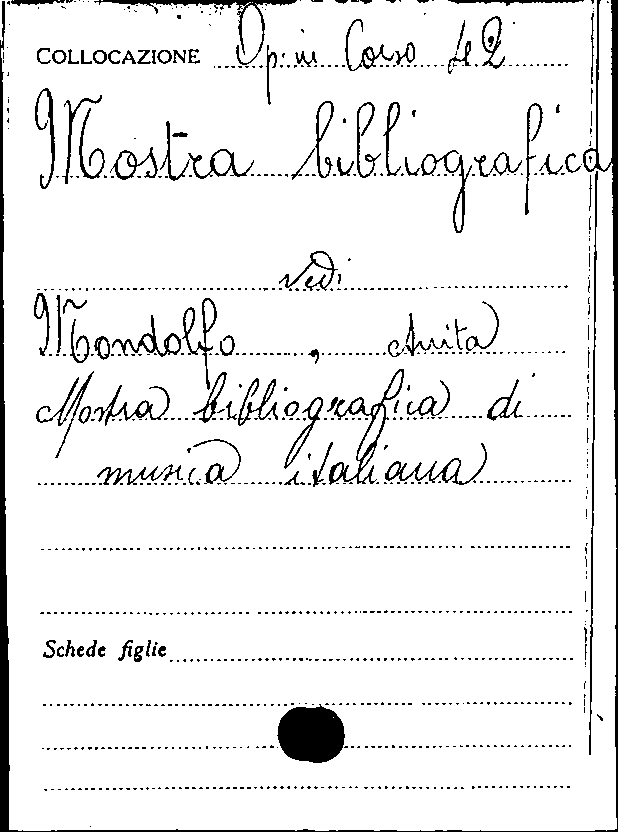 COLLOCAZIONE Op. in Corso 42
Mostra bibliografica
vedi
Mondolfo, Anita
Mostra bibliografica di
musica italiana
Schede figlie